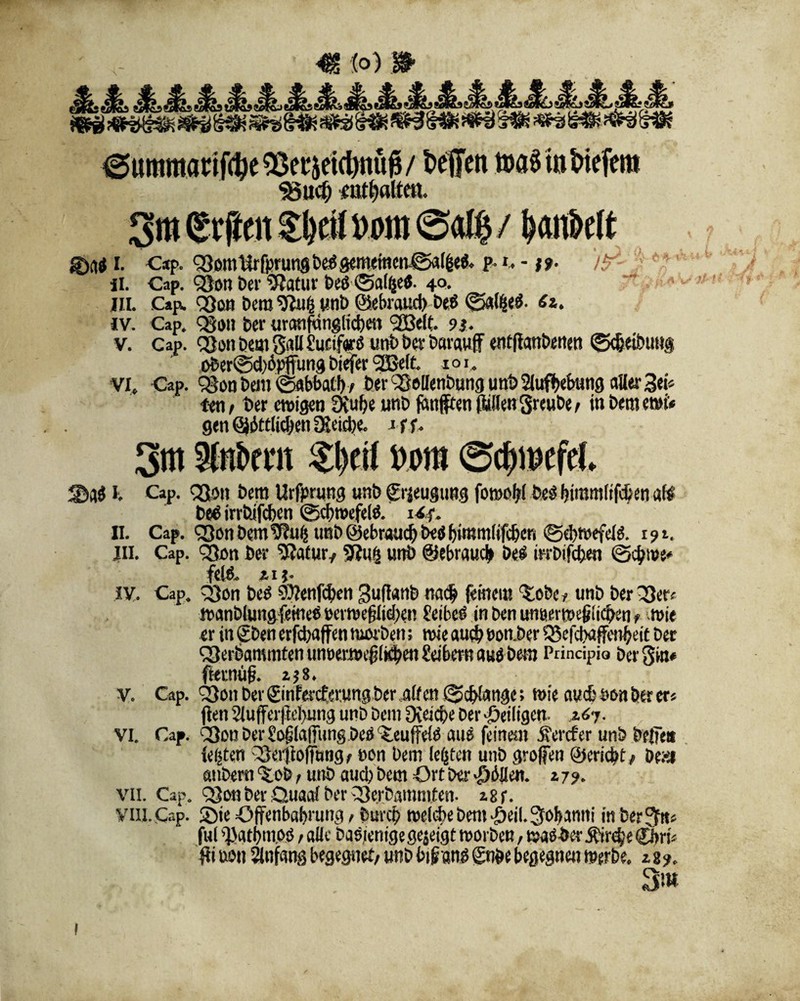 (o)
Summarisches Verzeichnüß / dessen was in diesem
Buch enthalten.
Im Ersten Theil vom Saltz / handelt
Das I. Cap. Vom Ursprung des gemeinen Saltzes. p. 1. - 39.
II. Cap. Von der Natur des Saltzes. 40.
III. Cap. Von dem Nutz vnd Gebrauch des Saltzes. 62.
IV. Cap. Von der uranfänglichen Welt. 93.
V. Cap. Von dem Fall Lucifers und der darauff entstandenen Scheidung
oder Schöpffung dieser Welt. 101.
VI. Cap. Von dem Sabbath / der Vollendung und Aufhebung aller Zei-
ten / der ewigen Ruhe und sanfften stillen Freude / in dem ewi-
gen Göttlichen Reiche. 155.
Im Andern Theil vom Schwefel.
Das I. Cap. Von dem Ursprung und Erzeugung sowohl des himmlischen als
des irrdischen Schwefels. 165.
II. Cap. Von dem Nutz und Gebrauch des himmlischen Schwefels. 191.
III. Cap. Von der Natur / Nutz und Gebrauch des irrdischen Schwe-
fels. 213.
IV. Cap. Von des Menschen Zustand nach seinem Tode / und der Ver-
wandlung seines verweßlichen Leibes in den unverweßlichen / wie
er in Eden erschaffen worden; wie auch von der Beschaffenheit der
Verdammten unverweßlichen Leibern aus dem Principio der Fin-
sternüß. 238.
V. Cap. Von der Einkerckerung der alten Schlange; wie auch von der er-
sten Aufferstehung und dem Reiche der Heiligen. 267.
VI. Cap. Von der Loßlassung des Teuffels aus seinem Kercker und dessen
letzten Verstossung / von dem letzten und grossen Gericht / dem
andern Tod / und auch dem Ort der Höllen. 279.
VII. Cap. Von der Quaal der Verdammten. 285.
VIII. Cap. Die Offenbahrung / durch welche dem Heil. Johanni in der In-
sul Pathmos / alle dasienige gezeigt worden / was der Kirche Chri-
sti von Anfang begegnet / und biß ans Ende begegnen werde. 289.
Im